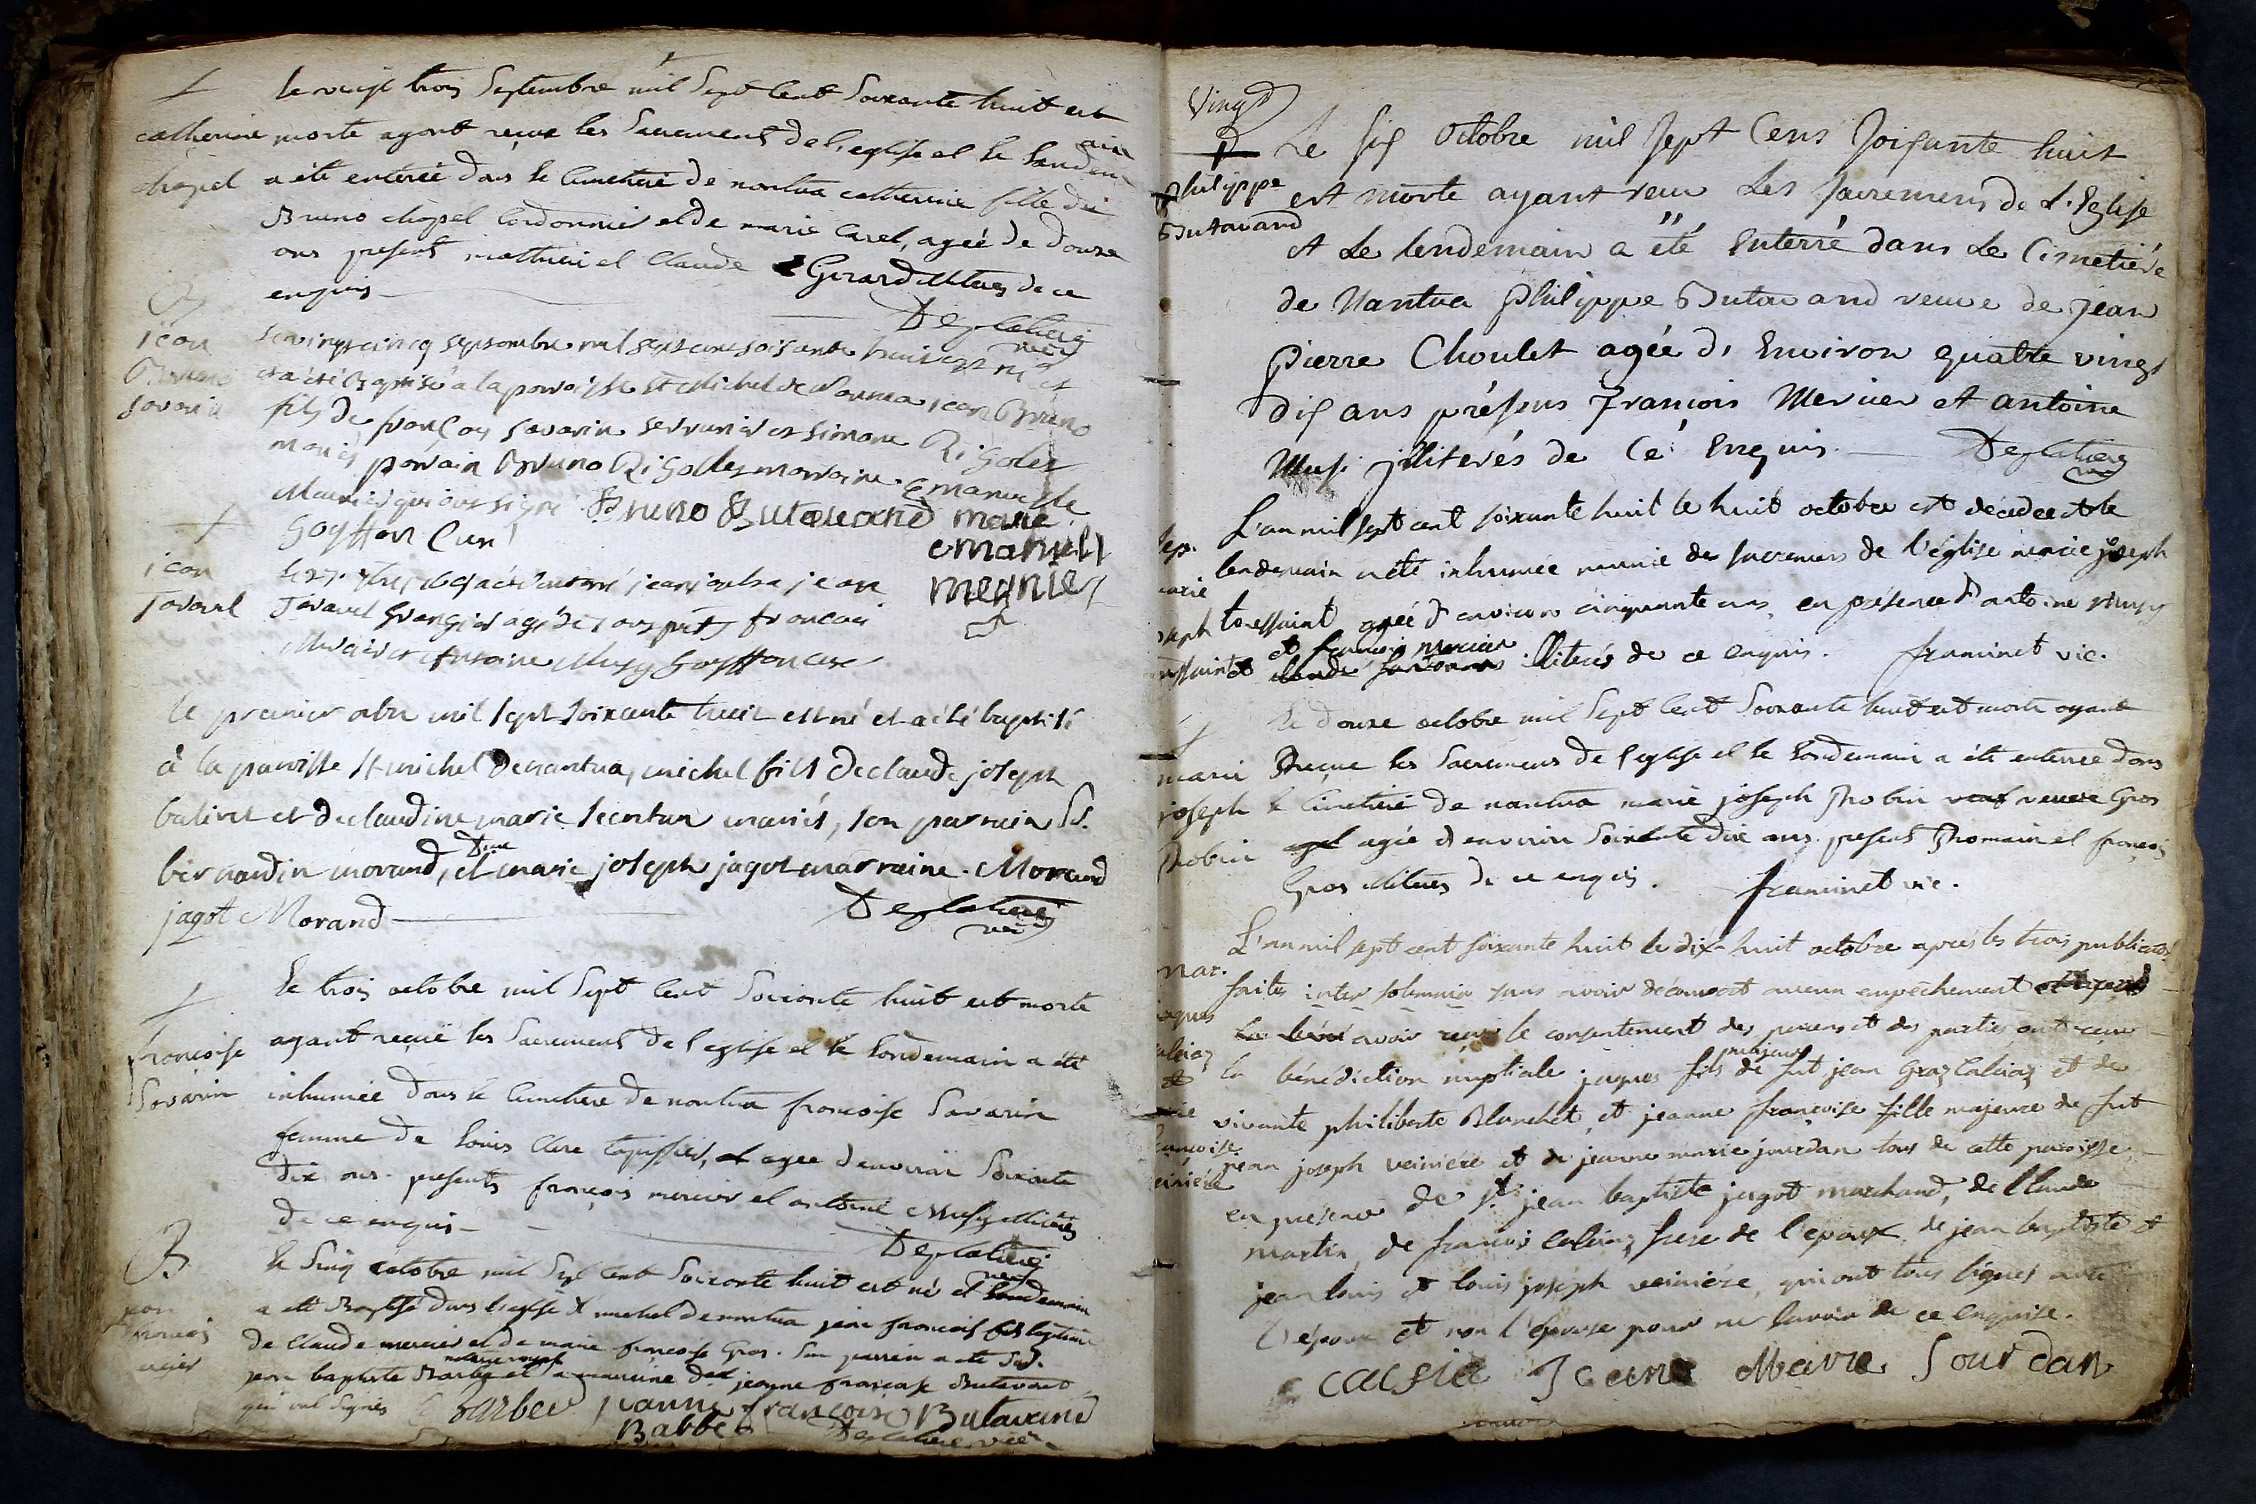 le vingt trois Septembre mil Sept Cent Soixante huit est
catherine morte ayant reçue les Sacrements de l'eglise et le lendemain
chapel a été enterrée dans le Cimetiere de nantua catherine fille de
Bruno chapel Cordonnier et de marie Carel, agée de douze
ans presents mathieu et Claude Girard illiteres de ce
enquis
Deglatieri
vic
jean Bruno Savarin
le vingt cinq septembre mil sept cent soisante huit est né et
et a été Baptisé a la paroisse St Michel de Nantua jean Bruno
fils de françois Savarin serrurier et Simone Rigolet
mariés parrain Bruno Rigollet marraine Emanuelle
Meunier qui ont signé Bruno Butavand marie
Goyffon Curé emanuell
megnier
jean
Javarel Granger agé de ans françois
Mercier et Antoine Musy Goyffon Curé
le premier mil Sept Soixante huit est né et a été baptisé
à la paroisse St michel de nantua, michel fils de claude joseph
balivet et de claudine marie mariés, son parrain Sr.
bernardin morand, et Dlle marie joseph jagot marraine. Morand
jagot Morand
Deglatieri
vic
Le trois octobre mil Sept Cent Soixante huit est morte
françoise ayant reçue les Sacrements de l'eglise et le Lendemain a été
Savarin inhumée dans le Cimetiere de nantua françoise Savarin
femme de Louis Clerc tapissier, agee d'environ Soixante
dix ans. presents françois mercier et antoine Musy illiterés
de ce enquis
Deglatieri
vic
B
le Cinq octobre mil Sept Cent Soixante huit est né et
a été Baptisé dans l'eglise St michel de nantua jean françois fils legitime
de Claude mercier et de marie françoise Gros. Son parrein a été Sr.
jean baptiste Barbe et marraine Dlle jeanne françoise Butavand
qui ont Signés Barbe jeanne françoise Butavand
Babbe Deglatieri vic.
Vingt
Le six Octobre mil sept Cens soixante huit
philippe est morte ayant reçu Les sacremens de L'Eglise
Butavand et Le lendemain a été Enterré dans Le Cimetiére
de Nantua philippe Butavand veuve de jean
pierre Choulet agée d'Environ quatre vingt
dix ans présens François Mercier et antoine
Musi illiterés de Ce Enquis. Deglatieri
vic
L'an mil sept cent soixante huit le huit octobre est décédée et le
lendemain a été inhumée munie des sacremens de l'église marie joseph
toussaint agée d'environ cinquante ans, en présence d'antoine musy
et françois mercier illiterés de ce enquis. framinet vic.
Le douze octobre mil Sept Cent Soixante huit est morte ayant
marie Reçue les Sacremens de l'eglise et le Lendemain a été enterrée dans
joseph le Cimetiere de nantua marie joseph Robin veuve Gros
Robin agée d'environ Soixante dix ans. present Romain et françois
Gros illiteres de ce enquis. framinet vic.
L'an mil sept cent soixante huit le dix huit octobre après les trois publications
mar. faites inter solemnia sans avoir découvert aucun empêchement
avoir reçu le consentement des parens et des parties ont reçu
la bénédiction nuptiale jaques fils majeur de fut jean Graz Calviaz et de
vivante philiberte Blanchet, et jeanne françoise fille majeure de fut
jean joseph veiniére et de jeanne marie jourdan tous de cette paroisse,
en présence de Sr. jean baptiste jagot marchand, de Claude
martin, de françois Calviaz frere de l'epoux, de jean baptiste et
jean louis et louis joseph veiniére, qui ont tous signés avec
l'époux et non l'épouse pour ne savoir de ce enquise.
Jeane Marie Jourdan